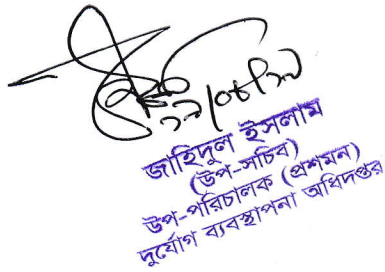 জাহিদুল ইসলাম
(উপ-সচিব)
উপ-পরিচালক (প্রশমন)
দুর্যোগ ব্যবস্থাপনা অধিদপ্তর